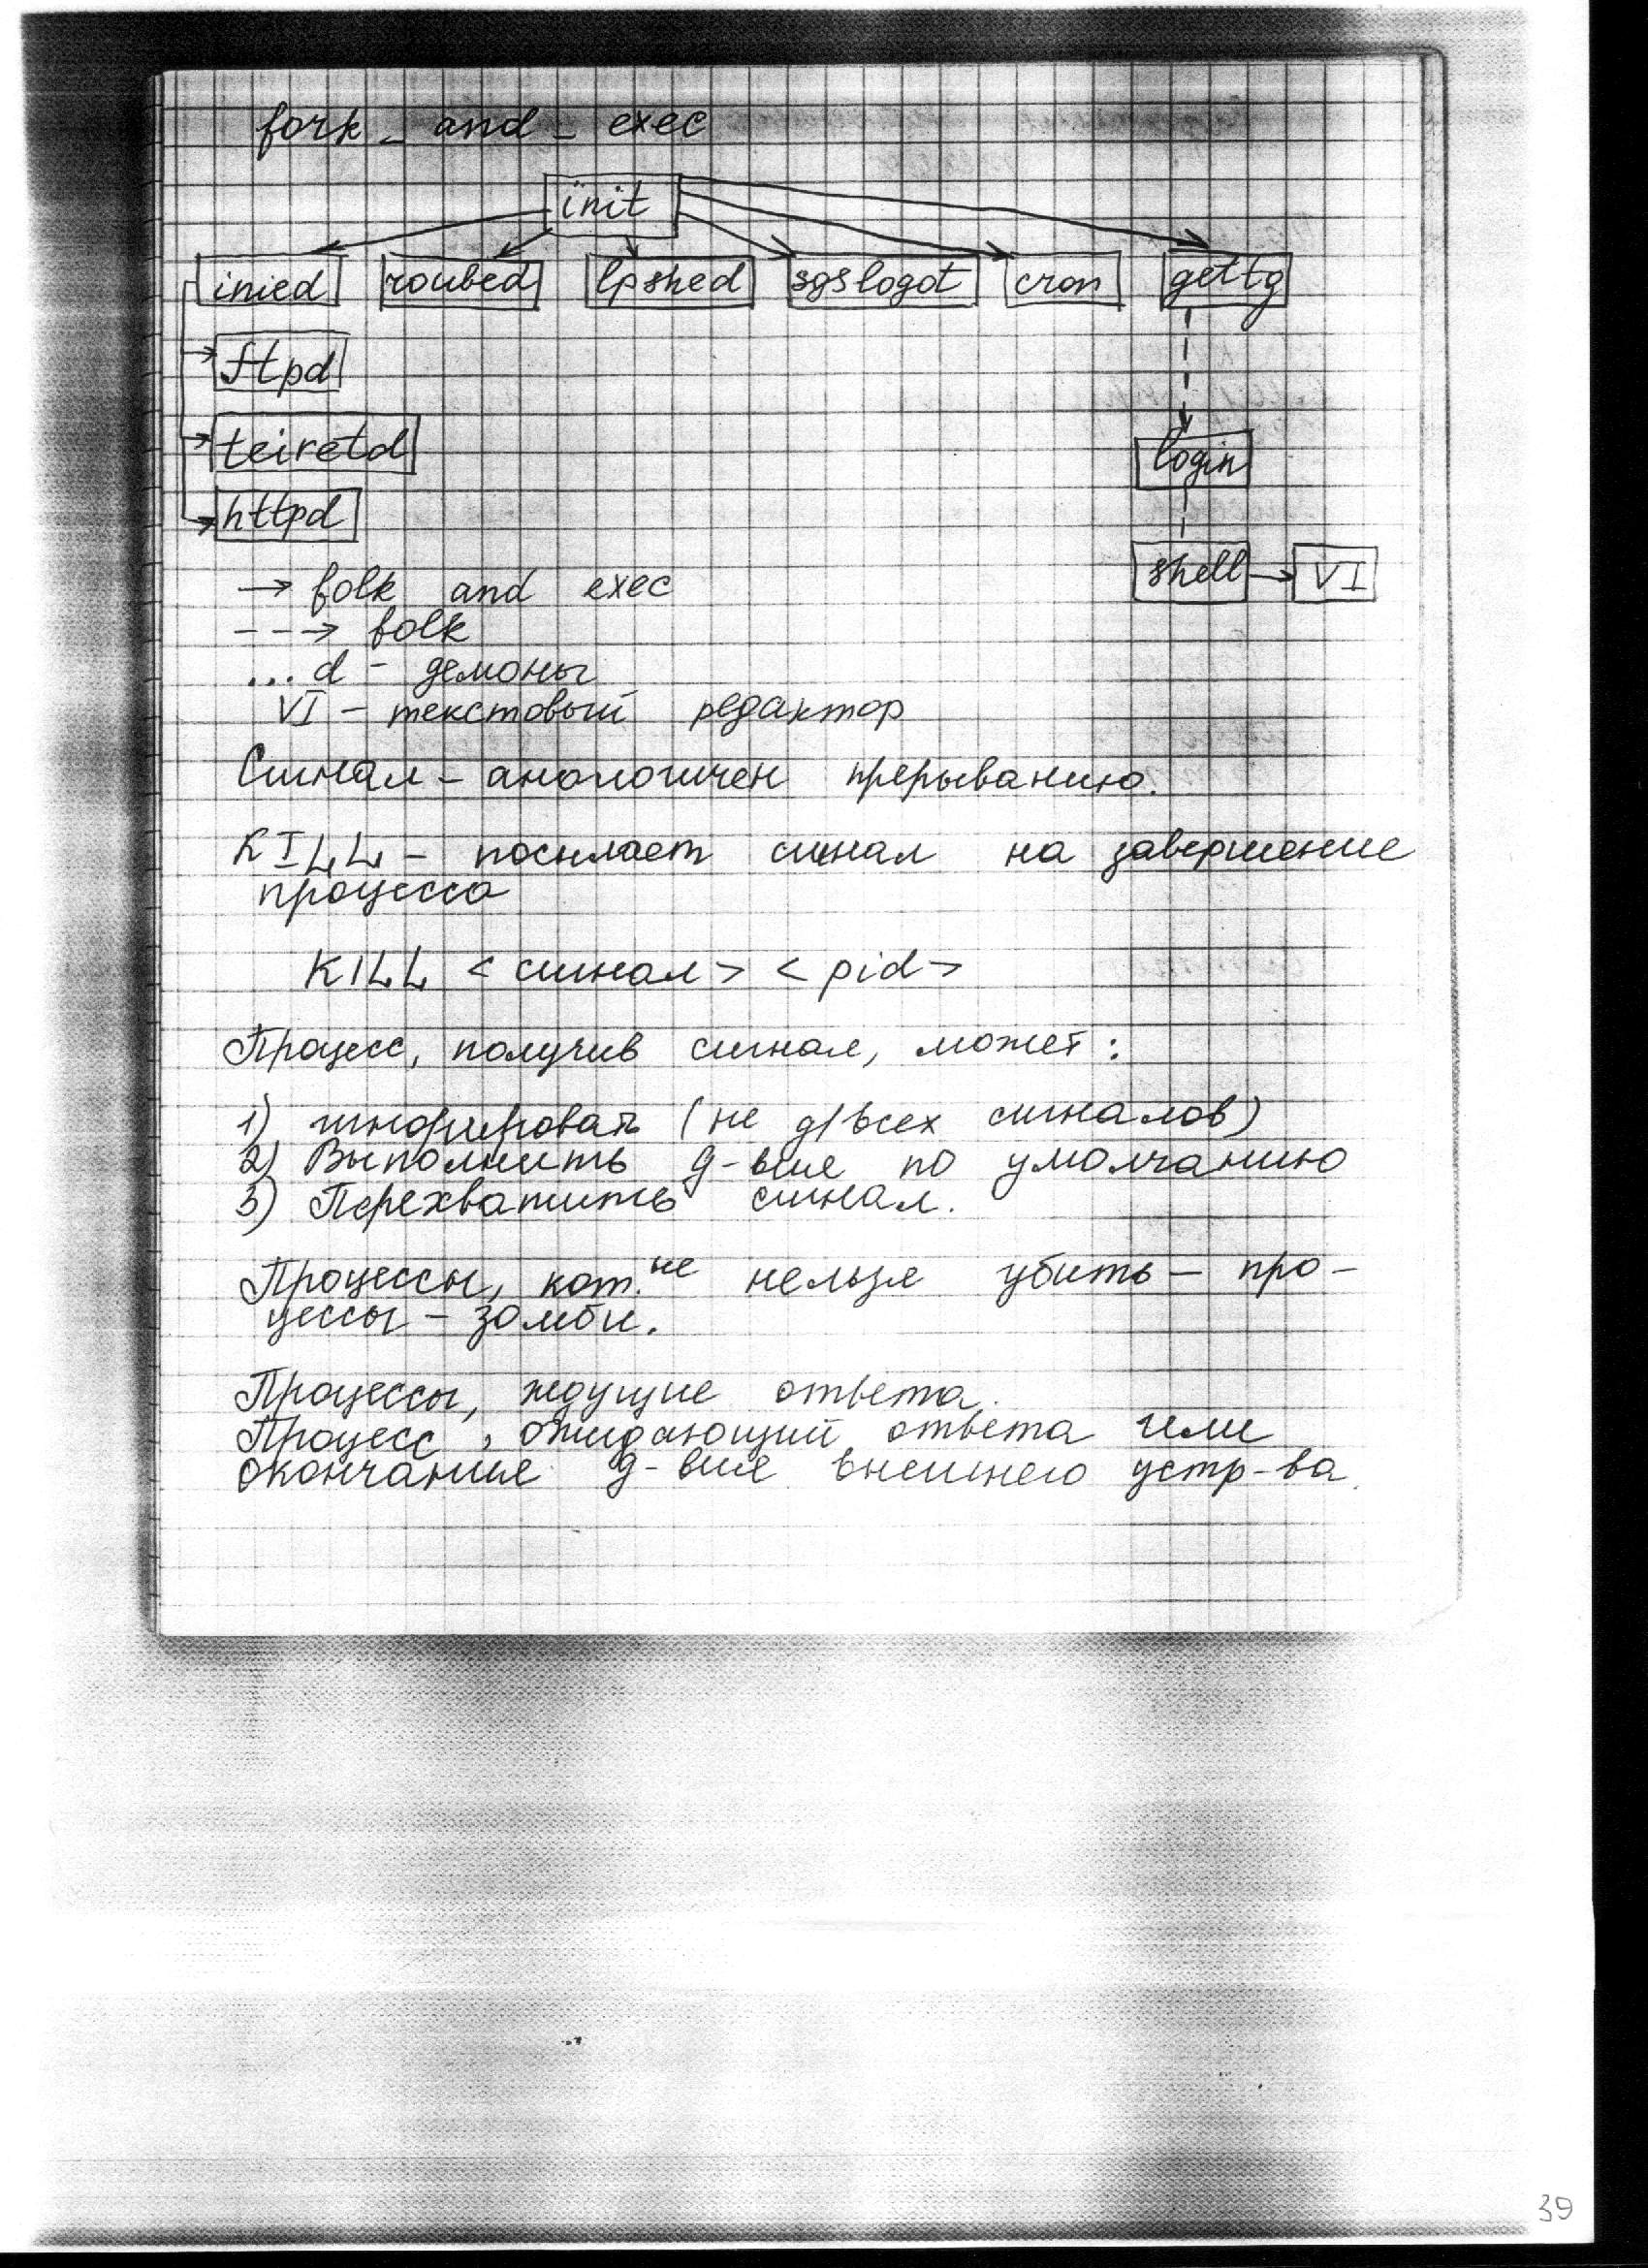 fork_and_exec
init
inied roubed lpshed sgslogot cron gettg
ftpd
teiretd
login
httpd
shell VI
→ folk and exec
---→ folk
...d - демоны
VI - текстовый редактор
Сигнал - анологичен прерыванию.
KILL - посылает сигнал на завершение
процесса
KILL <сигнал> <pid>
Процесс, получив сигнал, может:
1) (не д/всех сигналов)
2) Выполнить д-вие по умолчанию
3) Перехватить сигнал.
Процессы, кот. не нельзя убить - про-
цессы - зомби.
Процессы, ждущие ответа.
Процесс, ожидающий ответа или
окончание д-вие внешнего устр-ва.
39